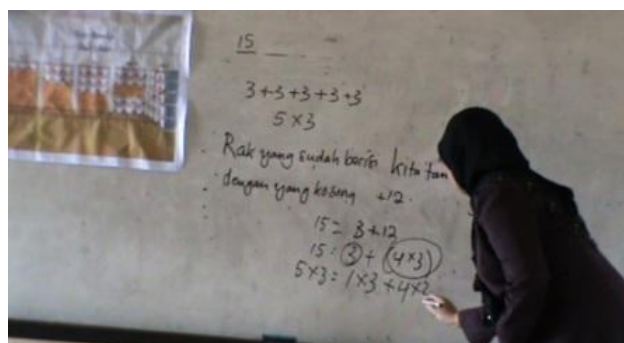 15
3+3+3+3+3
5×3
Rak yang sudah berisi kita tam
dengan yang kosong +12.
15 = 3+12
15 = 3 + (4×3)
5×3 = 1×3 + 4×3